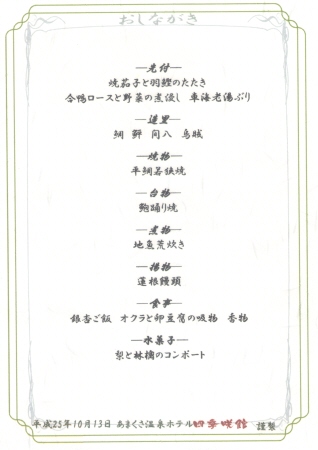 おしながき
―先付―
焼茄子と羽鰹のたたき
合鴨ロースと野菜の煮浸し 車海老湯ぶり
―造里―
鯛 鮃 間八 烏賊
―焼物―
平鯛若狭焼
―台物―
鮑踊り焼
―煮物―
地魚荒炊き
―揚物―
蓮根饅頭
―食事―
銀杏ご飯 オクラと卵豆腐の吸物 香物
―水菓子―
梨と林檎のコンポート
平成25年10月13日 あまくさ温泉ホテル四季咲館 謹製